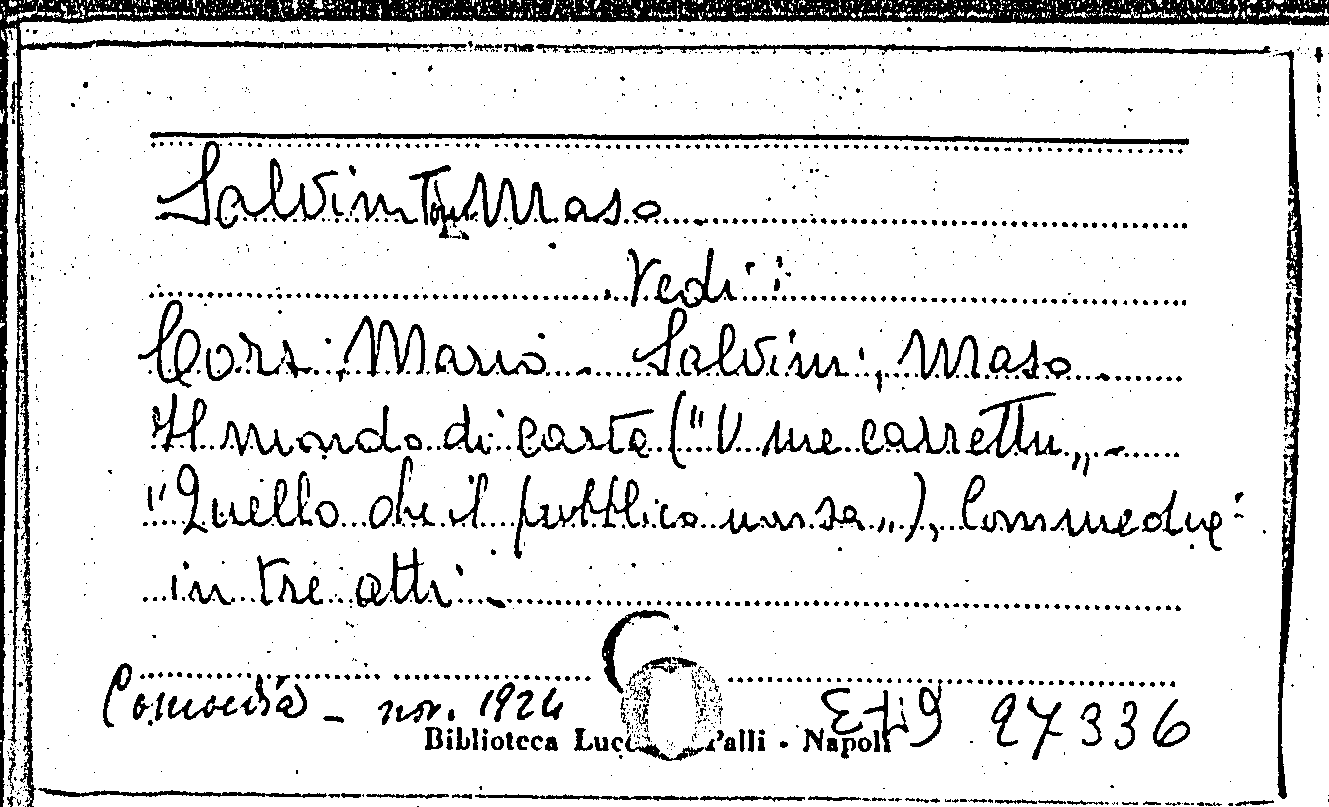 Salvini Maso.
Vedi:
Corsi, Mario - Salvini, Maso.
Il mondo di carta ("U me carrettu„ -
"Quello che il pubblico non sa„), Commedie
in tre atti -
Comoedia - nov. 1924
97336
Biblioteca Palli - Napoli